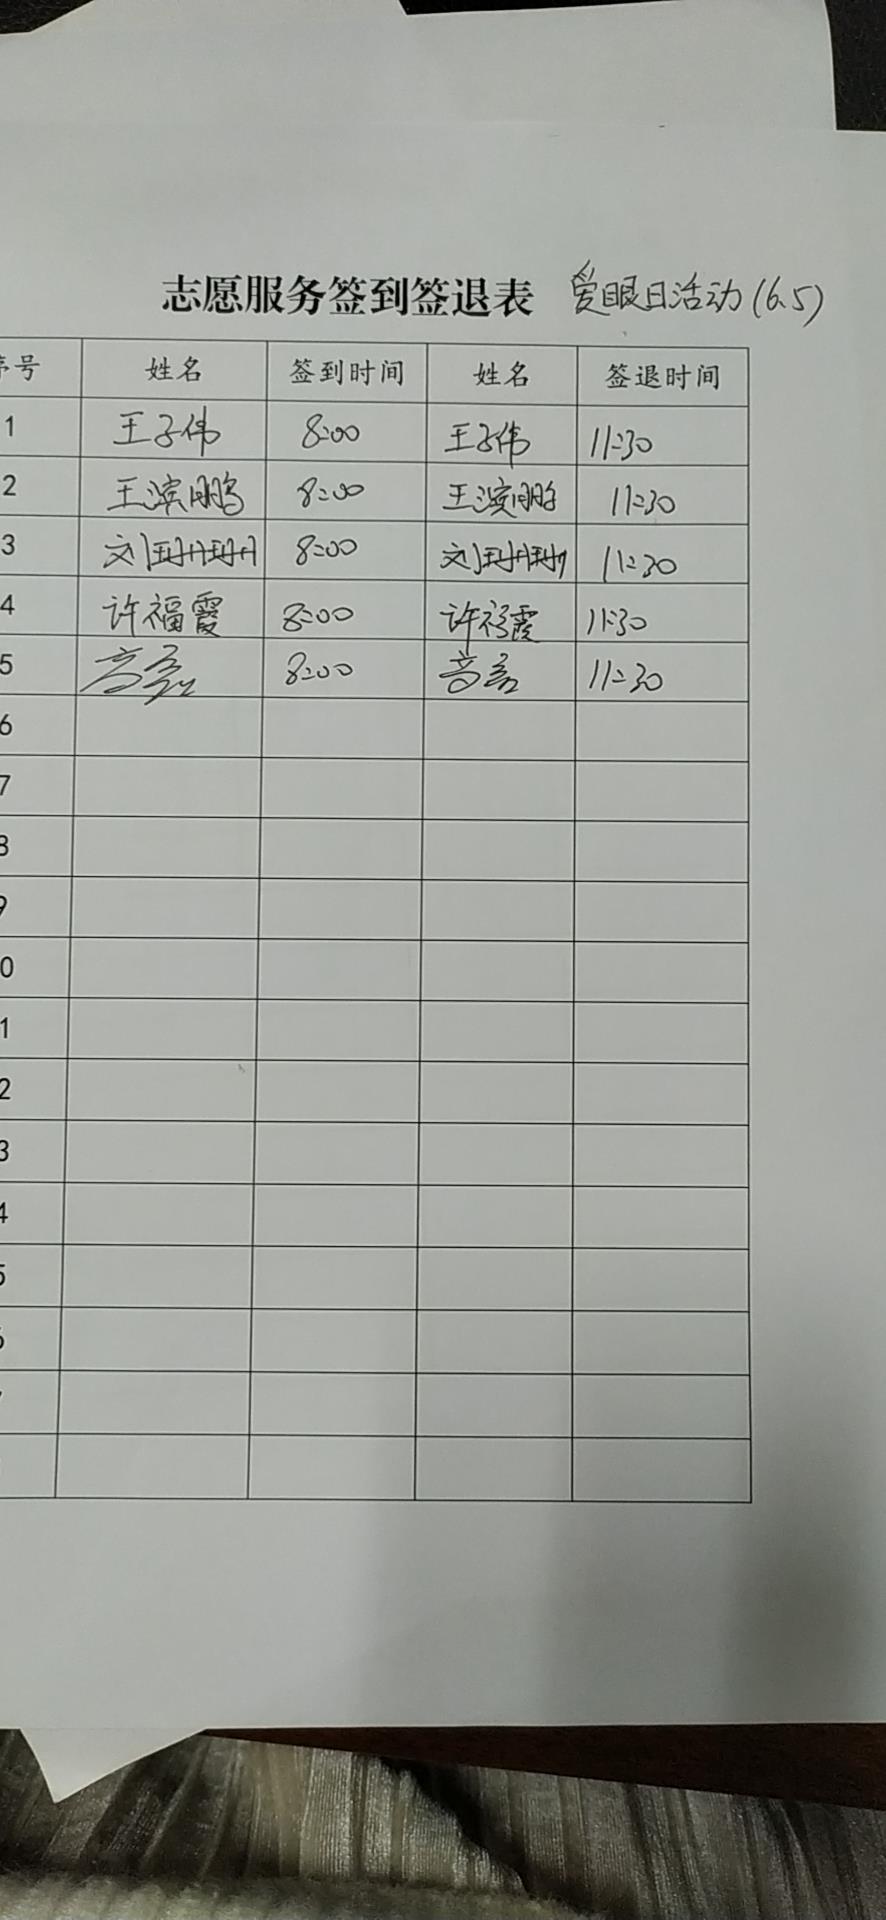 志愿服务签到签退表 爱眼日活动(6.5)
序号 姓名 签到时间 姓名 签退时间
1 王子伟 8:00 王子伟 11:30
2 王滨鹏 8:00 王滨鹏 11:30
3 刘珊珊 8:00 刘珊珊 11:30
4 许福霞 8:00 许福霞 11:30
5 8:00 11:30
6
7
8
9
0
1
2
3
4
5
6